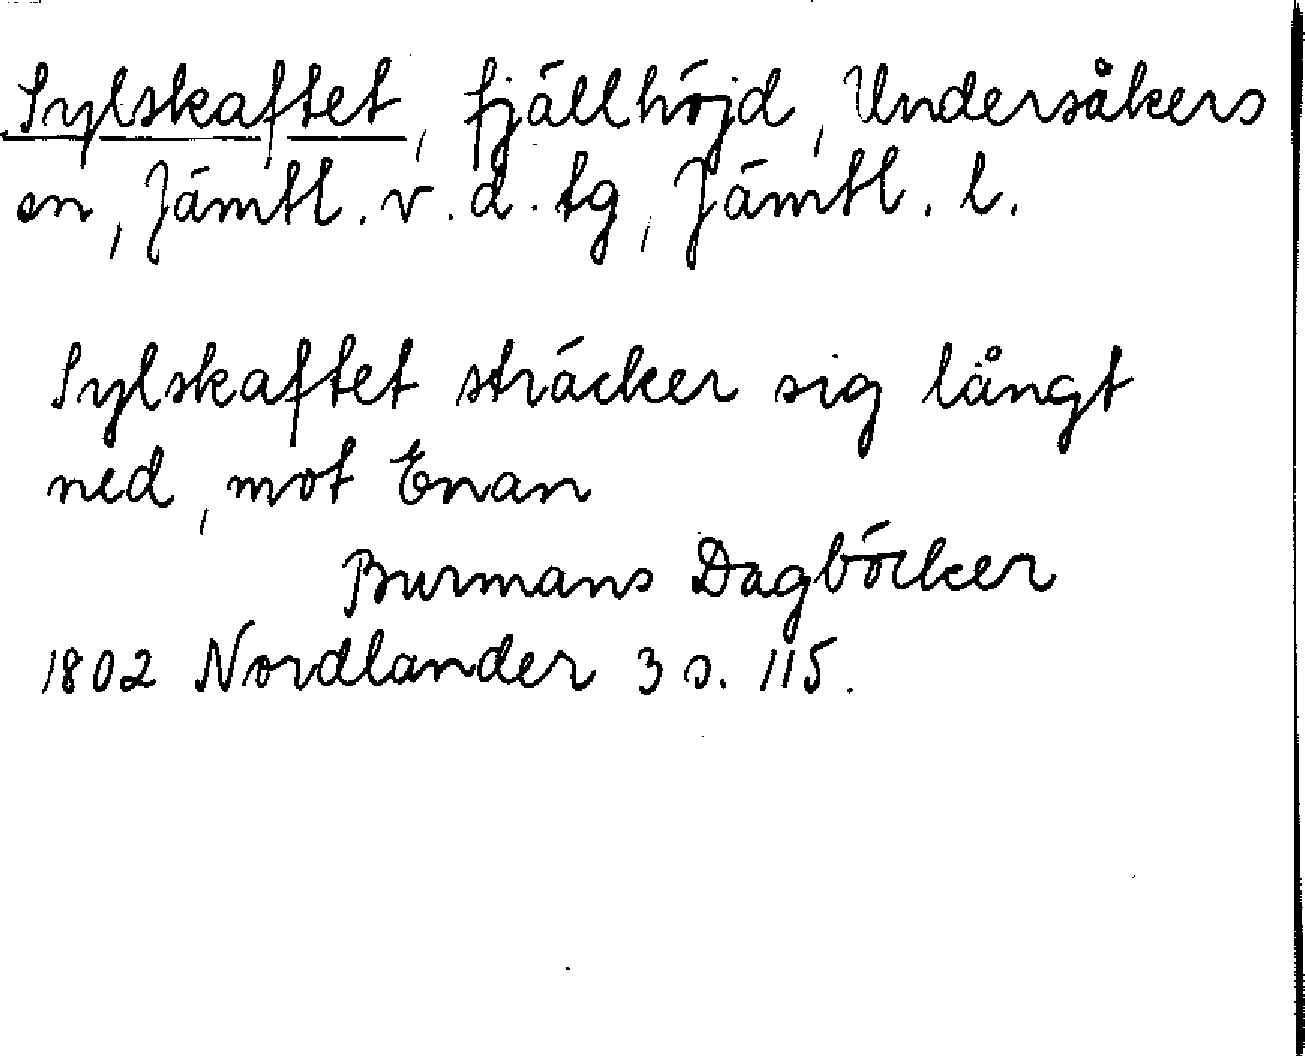 Sylskaftet, fjällhöjd, Undersåkers
sn, Jämtl. v. d. tg, Jämtl. l.
Sylskaftet sträcker sig långt
ned, mot Enan
Burmans Dagböcker
1802 Nordlander 3 s. 115.